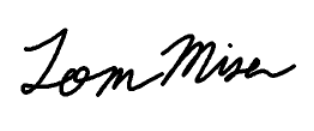 Tom Miser